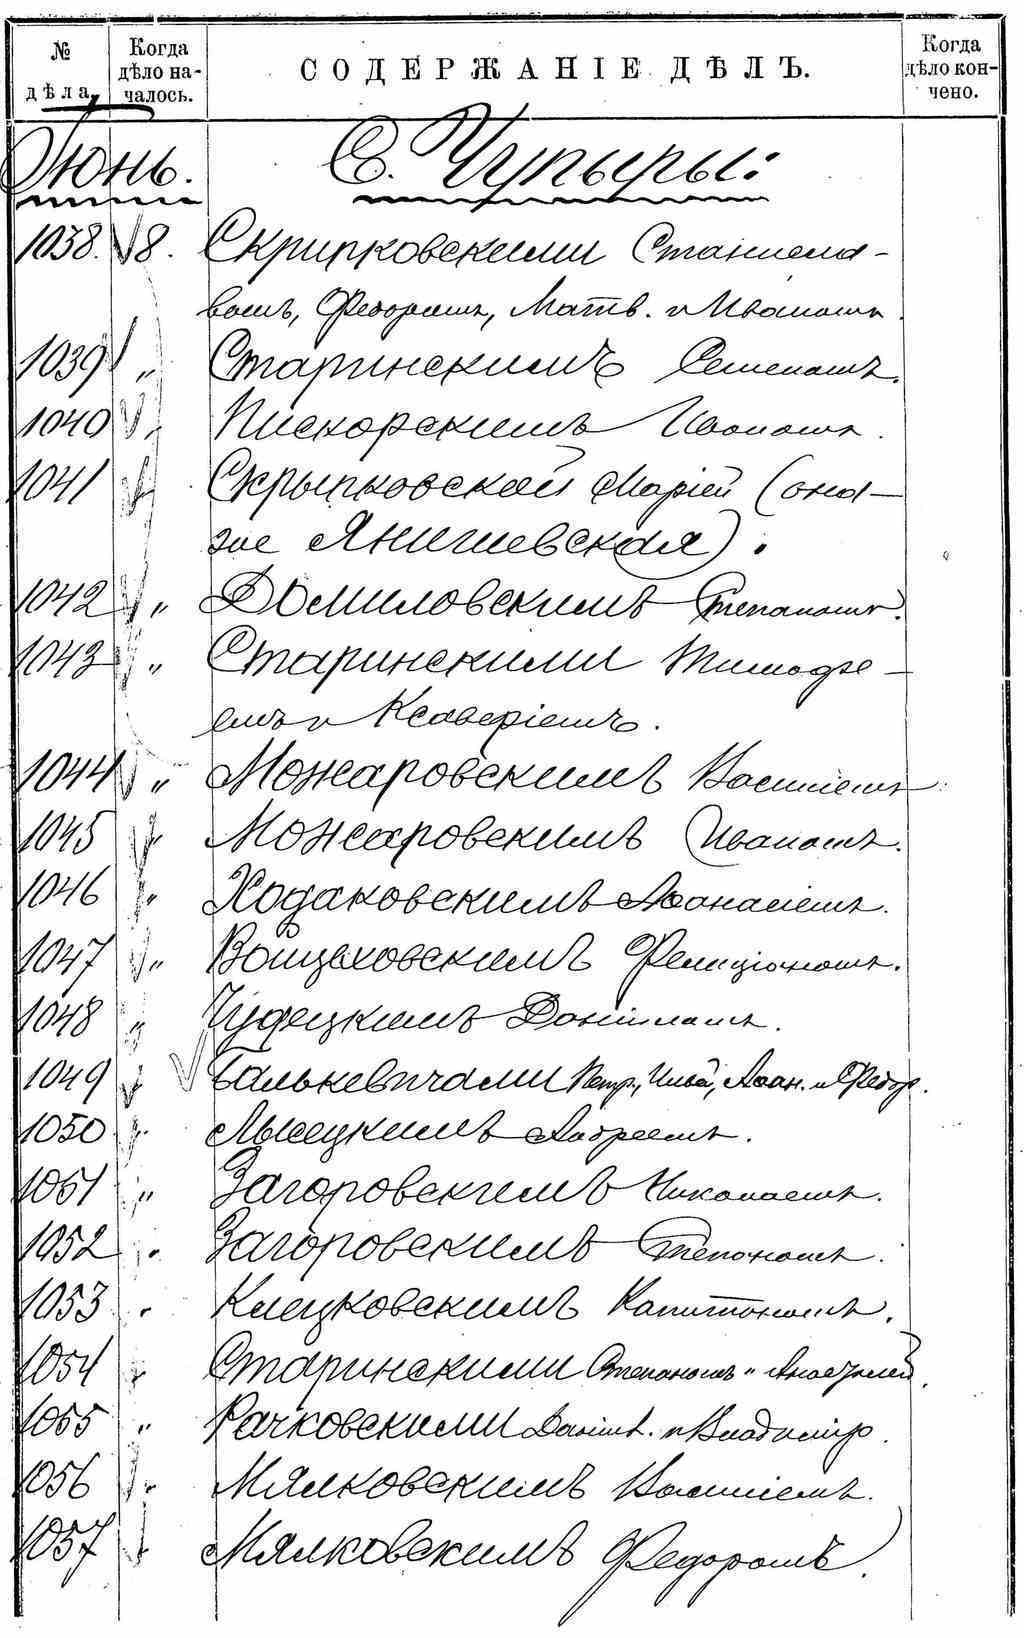 № дѣла
Когда дѣло началось.
СОДЕРЖАНІЕ ДѢЛЪ.
Когда дѣло кончено.
Іюнь. С. Чупыры:
1038. 8. Скрипковскими Станисла-
вомъ, Федоромъ, Матв. и Иваномъ.
1039 " Старинскимъ Семеномъ.
1040 " Пискорскимъ Иваномъ.
1041 " Скрыпковской Маріей (она-
же Янишевская).
1042 " Домиловскимъ Степаномъ.
1043 " Старинскими Тимофе-
емъ и Ксаверіемъ.
1044 " Можаровскимъ Василіемъ
1045 " Можаровскимъ Иваномъ.
1046 " Ходаковскимъ Аѳанасіемъ.
1047 " Войцеховскимъ Фелиціаномъ.
1048 " Чудецкимъ Даніиломъ.
1049 " Галькевичами Петр., Ильей, Аѳан. и Федор.
1050 " Лысецкимъ Андреемъ.
1051 " Загоровскимъ Николаемъ.
1052 " Загоровскимъ Степаномъ.
1053 " Клецковскимъ Капитономъ.
1054 " Старинскими Степаномъ и
1055 " Рачковскими Даніил. и Владимір.
1056 " Мялковскимъ Василіемъ.
1057 " Мялковскимъ Федоромъ.